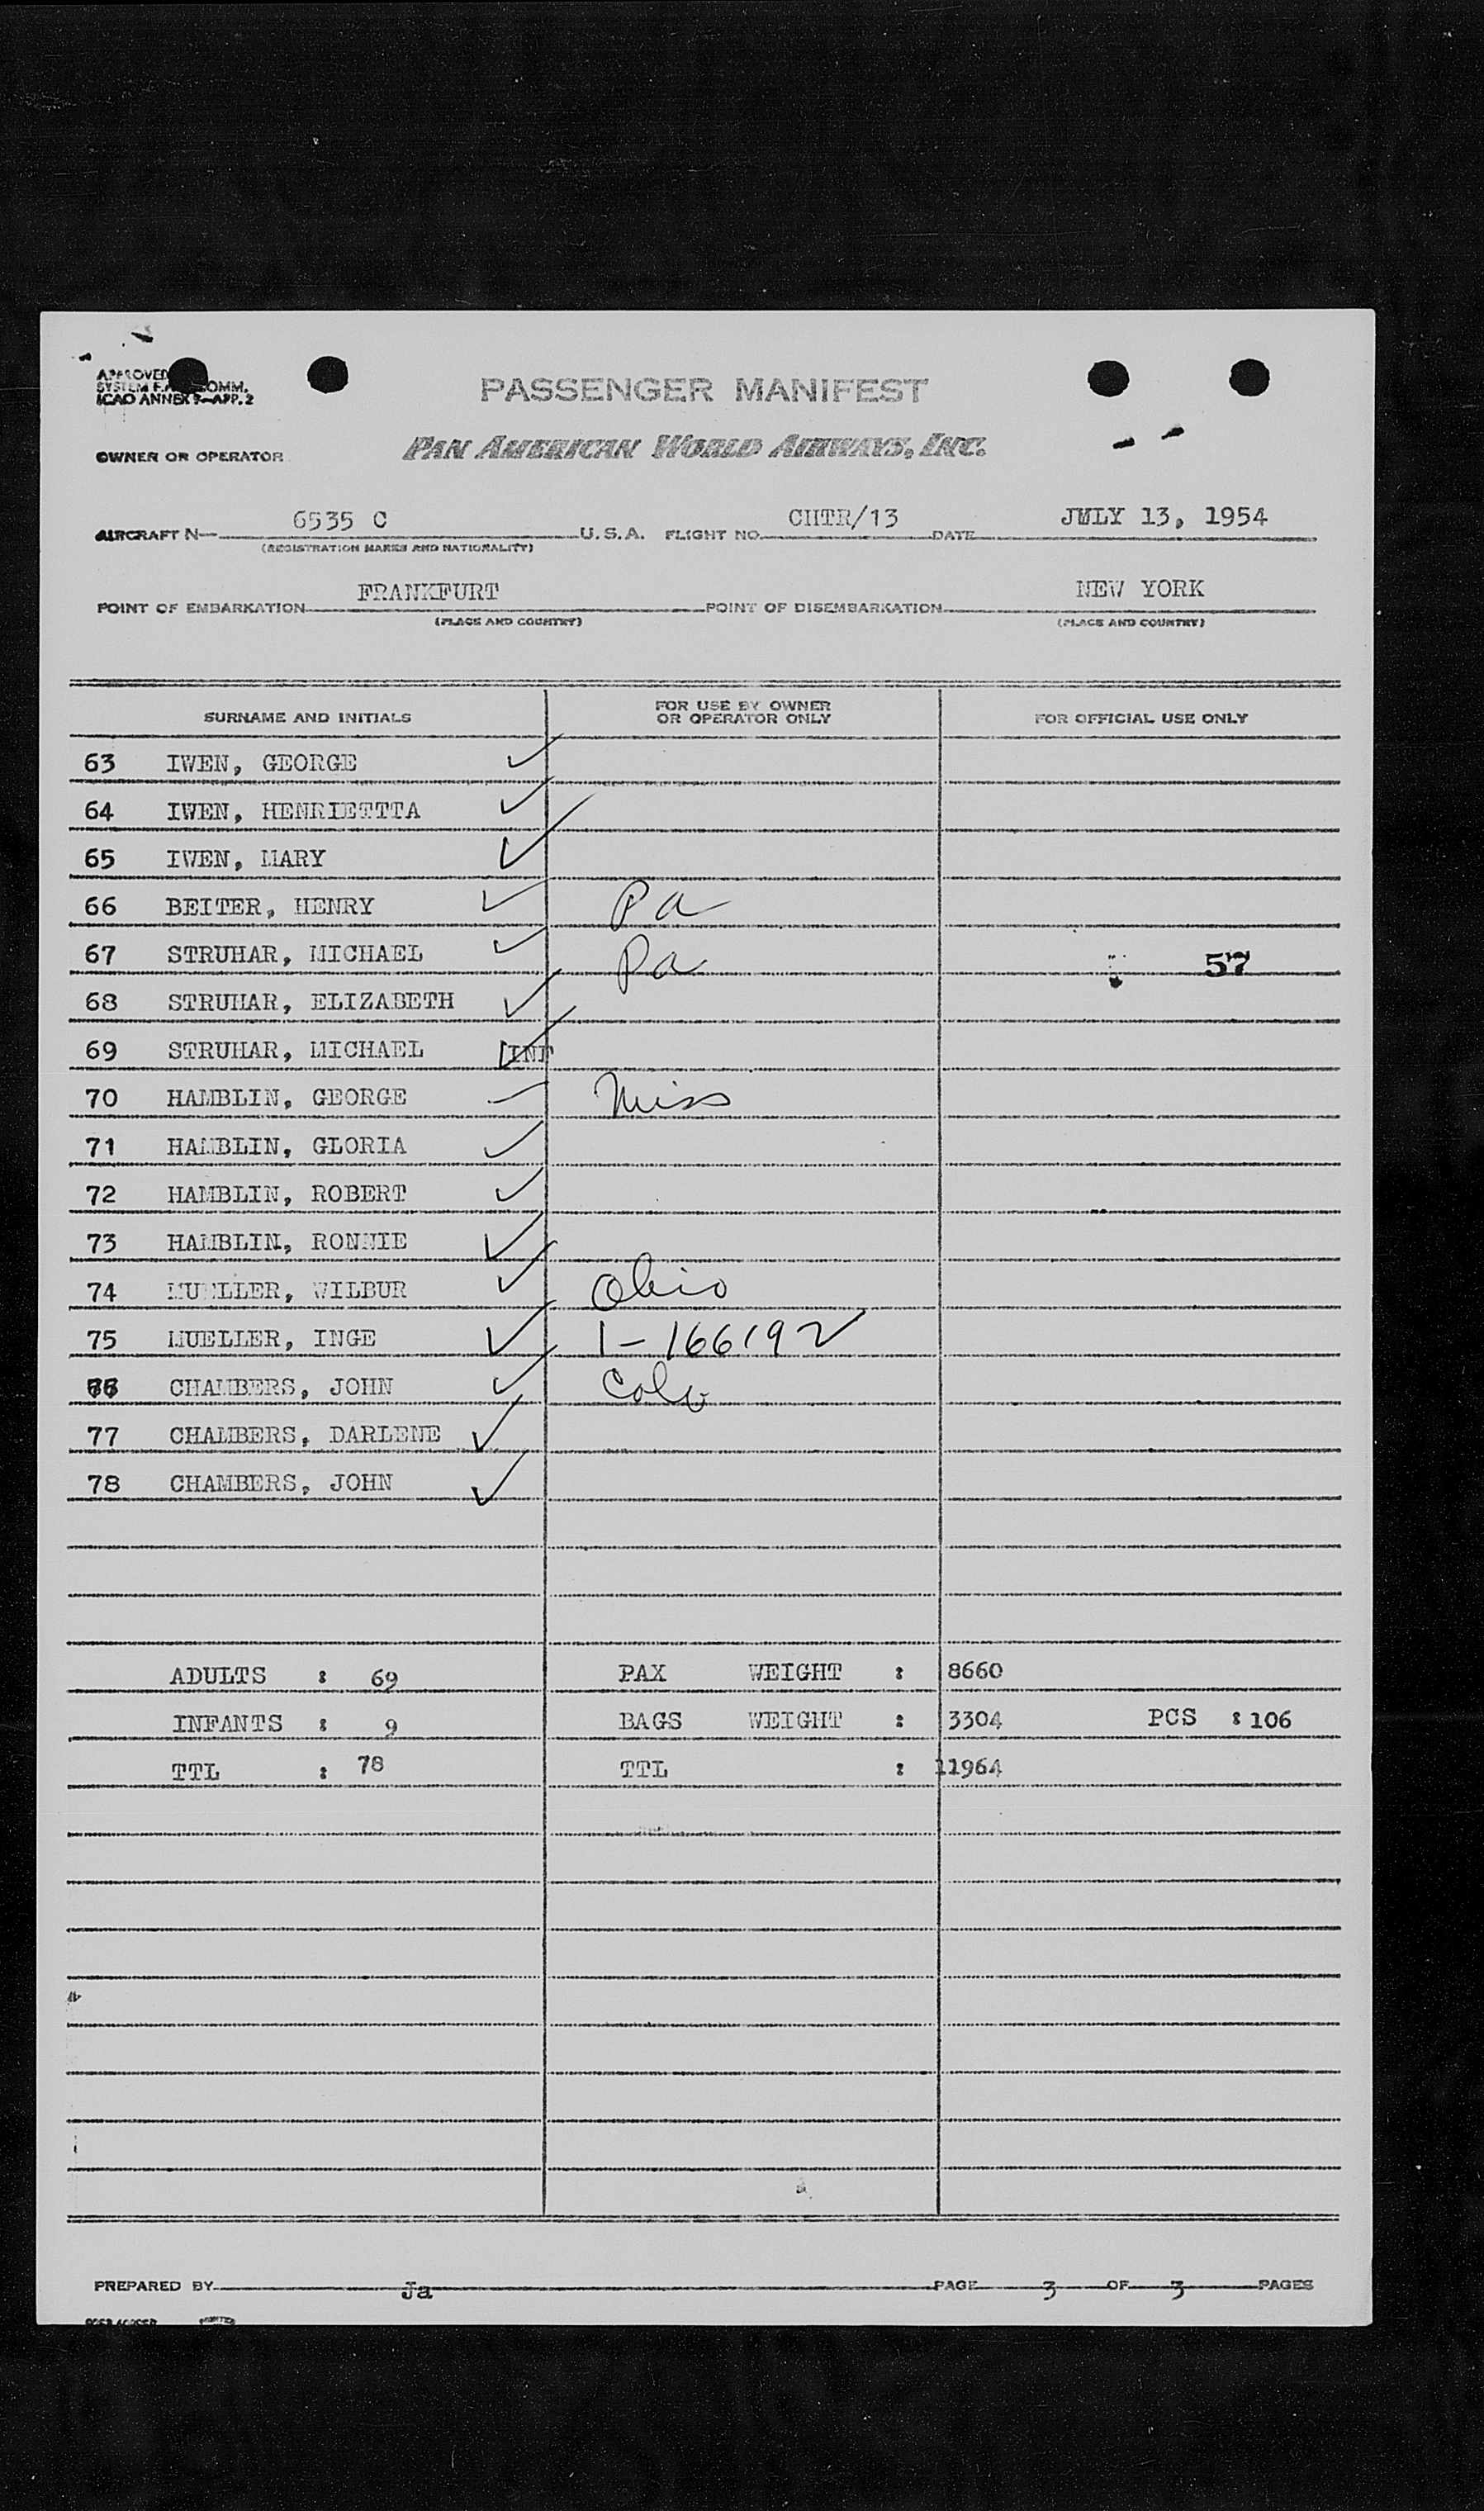 PASSENGER MANIFEST
ICAO ANNEX 9—APP. 2
OWNER OR OPERATOR PAN AMERICAN WORLD AIRWAYS, INC.
AIRCRAFT N— 6535 C U. S. A. FLIGHT NO. CHTR/13 DATE JULY 13, 1954
(REGISTRATION MARKS AND NATIONALITY)
POINT OF EMBARKATION FRANKFURT POINT OF DISEMBARKATION NEW YORK
(PLACE AND COUNTRY) (PLACE AND COUNTRY)
SURNAME AND INITIALS FOR USE BY OWNER OR OPERATOR ONLY FOR OFFICIAL USE ONLY
63 IWEN, GEORGE
64 IWEN, HENRIETTTA
65 IWEN, MARY
66 BEITER, HENRY Pa
67 STRUHAR, MICHAEL Pa 57
68 STRUHAR, ELIZABETH
69 STRUHAR, MICHAEL INF
70 HAMBLIN, GEORGE Miss
71 HAMBLIN, GLORIA
72 HAMBLIN, ROBERT
73 HAMBLIN, RONNIE
74 MUELLER, WILBUR Ohio
75 MUELLER, INGE 1-166192
76 CHAMBERS, JOHN Colo
77 CHAMBERS, DARLENE
78 CHAMBERS, JOHN
ADULTS : 69 PAX WEIGHT : 8660
INFANTS : 9 BAGS WEIGHT : 3304 PCS : 106
TTL : 78 TTL : 11964
PREPARED BY Ja PAGE 3 OF 3 PAGES